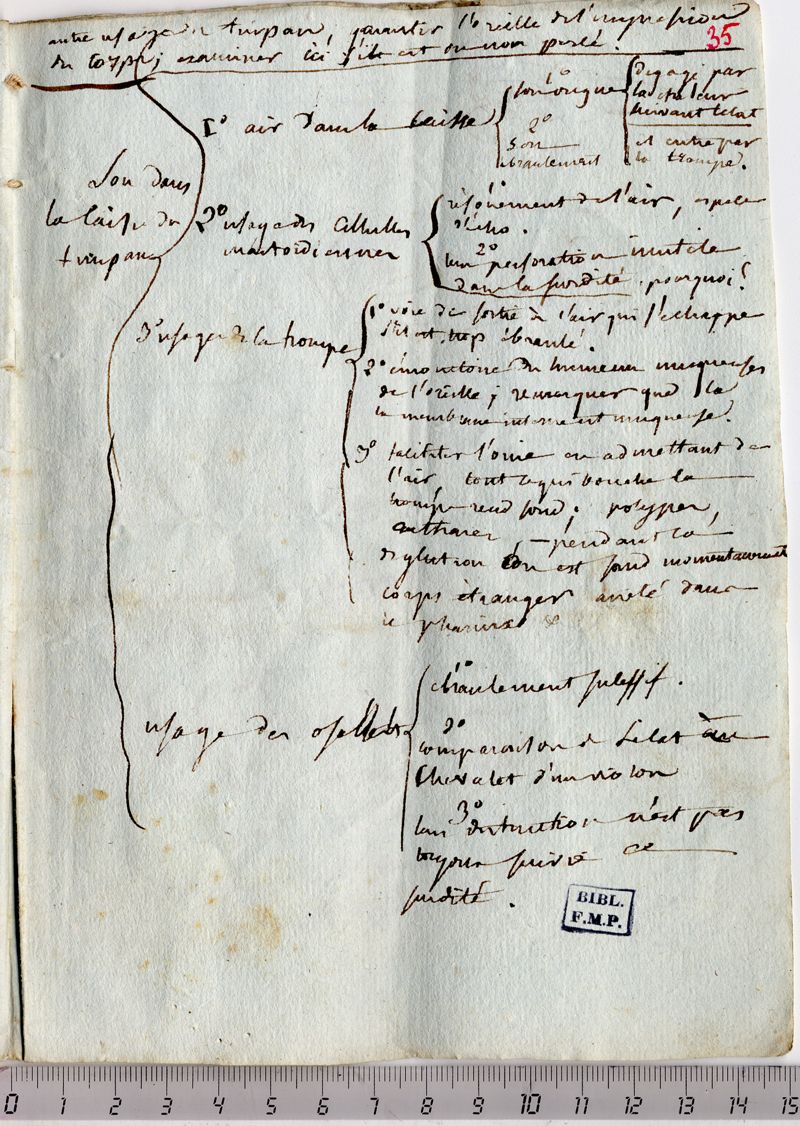 autre usage du timpan, garantir l'oreille de l'impression
du corps; examiner ici s'il est ou non percé.
35
Son dans
la caisse du
timpan
1° air dans la caisse
1°
son origine
dégagé par
la chaleur
suivant Lelat
et entre par
la trompe.
2°
son
ebranlement
2° usage des Cellulles
mastoidiennes
résonement de l'air, espece
d'écho.
2°
leur perforation inutile
dans la surdité. pourquoi?
3° usages de la trompe
1° voie de sortie de l'air qui s'echappe
s'il est trop ébranlé.
2° émonctoire des humeurs muqueuses
de l'oreille; remarquer que la
membrane interne est muqueuse.
3° faciliter l'ouie en admettant de
l'air, tout ce qui bouche la
trompe rend sourd; polypes,
catharres, - pendant la
deglutition on est sourd momentanement
corps étranger arreté dans
le pharinx &
usage des osselets
1°
ébranlement successif.
2°
comparaison de Lelat au
Chevalet d'un violon
3°
leur destruction n'est pas
toujours suivie de
surdité.
BIBL.
F.M.P.
0 1 2 3 4 5 6 7 8 9 10 11 12 13 14 15